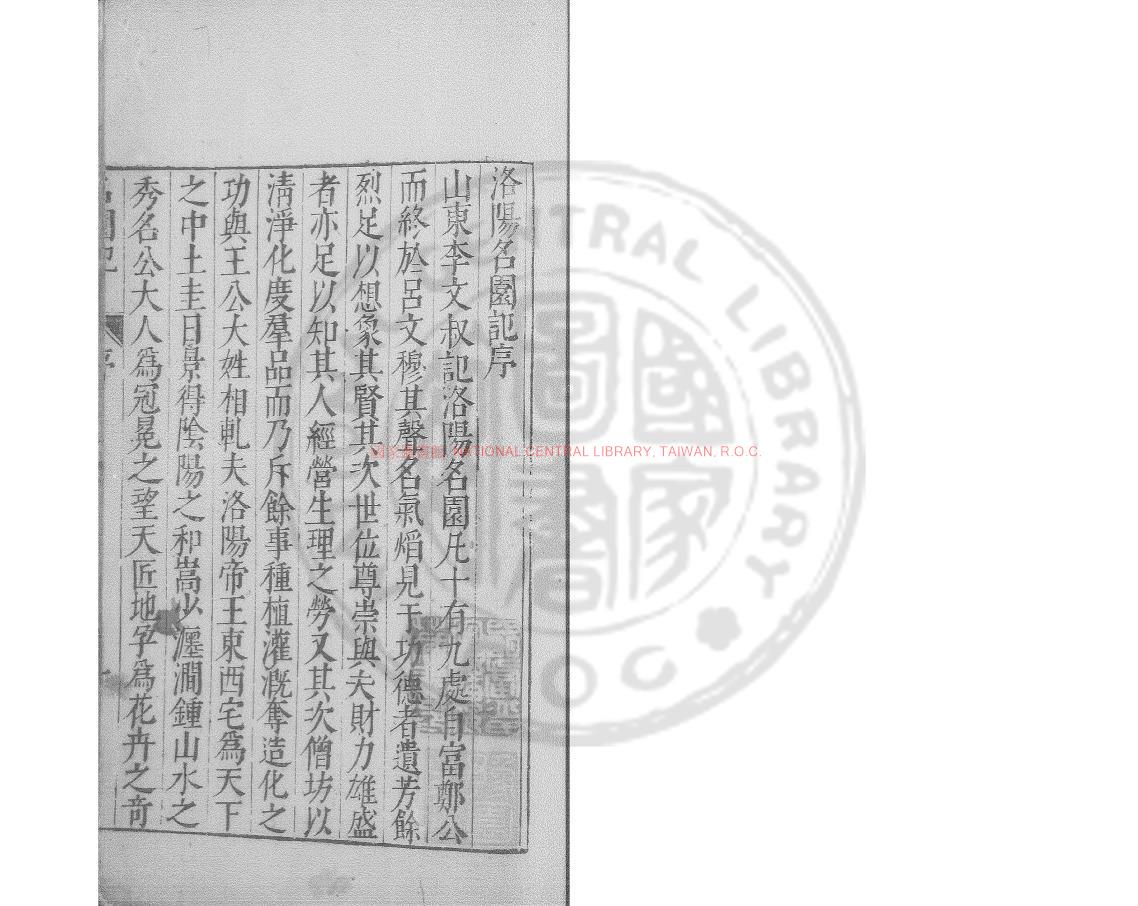 洛陽名園記序
山東李文叔記洛陽名園凡十有九處自富鄭公
而終於呂文穆其聲名氣焰見于功德者遺芳餘
烈足以想象其賢其次世位尊崇與夫財力雄盛
者亦足以知其人經營生理之勞又其次僧坊以
清淨化度羣品而乃斥餘事種植灌溉奪造化之
功與王公大姓相軋夫洛陽帝王東西宅為天下
之中土圭日景得陰陽之和嵩少瀍澗鍾山水之
秀名公大人爲冠冕之望天匠地孕爲花卉之奇
名園記
序
一
NATIONAL CENTRAL LIBRARY, TAIWAN, R.O.C.
CENTRAL LIBRARY